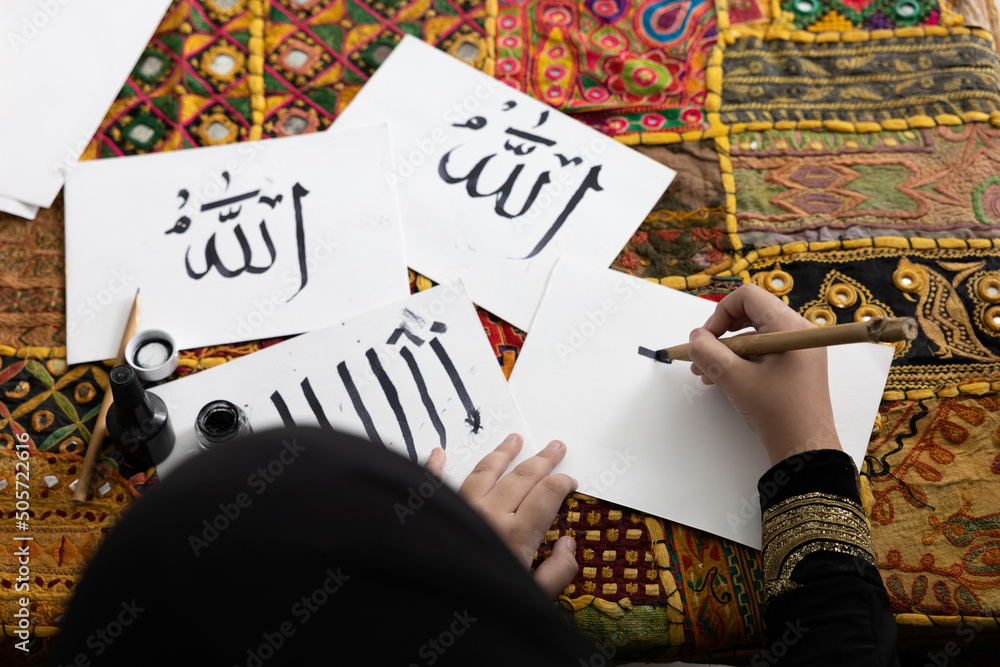 اللهُ
اللهُ
Adobe Stock | #505722616